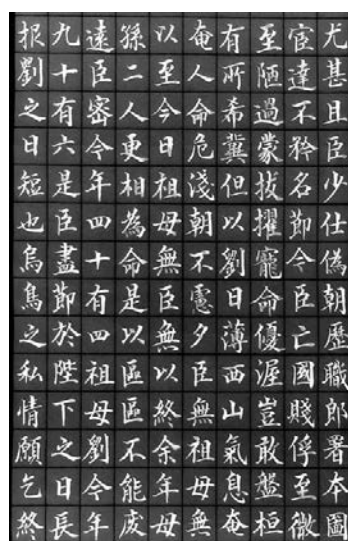 尤甚且臣少仕偽朝歷職郎署本圖
宦達不矜名節今臣亡國賤俘至微
至陋過蒙拔擢寵命優渥豈敢盤桓
有所希冀但以劉日薄西山氣息奄
奄人命危淺朝不慮夕臣無祖母無
以至今日祖母無臣無以終余年母
孫二人更相為命是以區區不能廢
遠臣密今年四十有四祖母劉今年
九十有六是臣盡節於陛下之日長
报劉之日短也烏鳥之私情願乞終